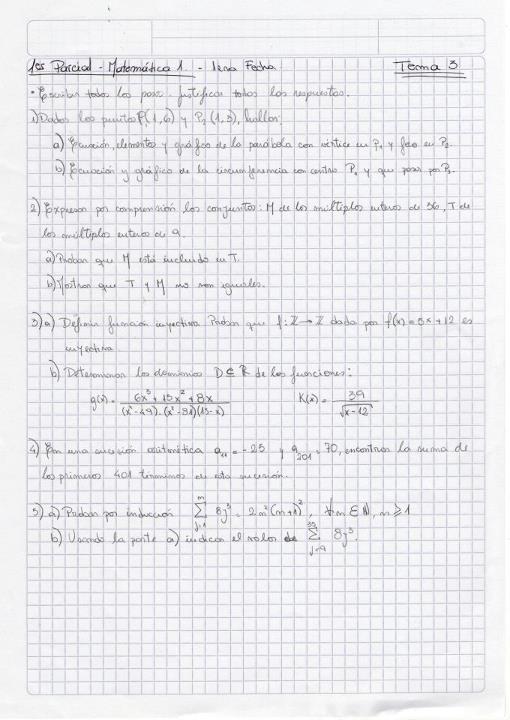 1er Parcial - Matemática 1. - 1era Fecha. Tema 3
• Escribir todos los pasos. Justificar todas las respuestas.
1) Dados los puntos P₁(1,6) y P₂(1,3), hallar:
a) Ecuación, elementos y gráfico de la parábola con vértice en P₁ y foco en P₂.
b) Ecuación y gráfico de la circunferencia con centro P₁ y que pasa por P₂.
2) Expresar por comprensión los conjuntos: M de los múltiplos enteros de 36, T de
los múltiplos enteros de 9.
a) Probar que M está incluido en T.
b) Mostrar que T y M no son iguales.
3) a) Definir función inyectiva. Probar que f: ℤ → ℤ dada por f(x) = 5x + 12 es
inyectiva.
b) Determinar los dominios D ⊆ ℝ de las funciones:
g(x) = (6x³ + 13x² + 8x) / ((x² - 49).(x² - 81)(13 - x)) K(x) = 39 / √(x - 12)
4) En una sucesión aritmética a₁₁ = -25 y a₂₀₁ = 70, encontrar la suma de
los primeros 401 términos de esta sucesión.
5) a) Probar por inducción ∑_{j=1}^{n} 8j³ = 2n²(n+1)², ∀n ∈ ℕ, n ≥ 1
b) Usando la parte a) indicar el valor de ∑_{j=9}^{39} 8j³.